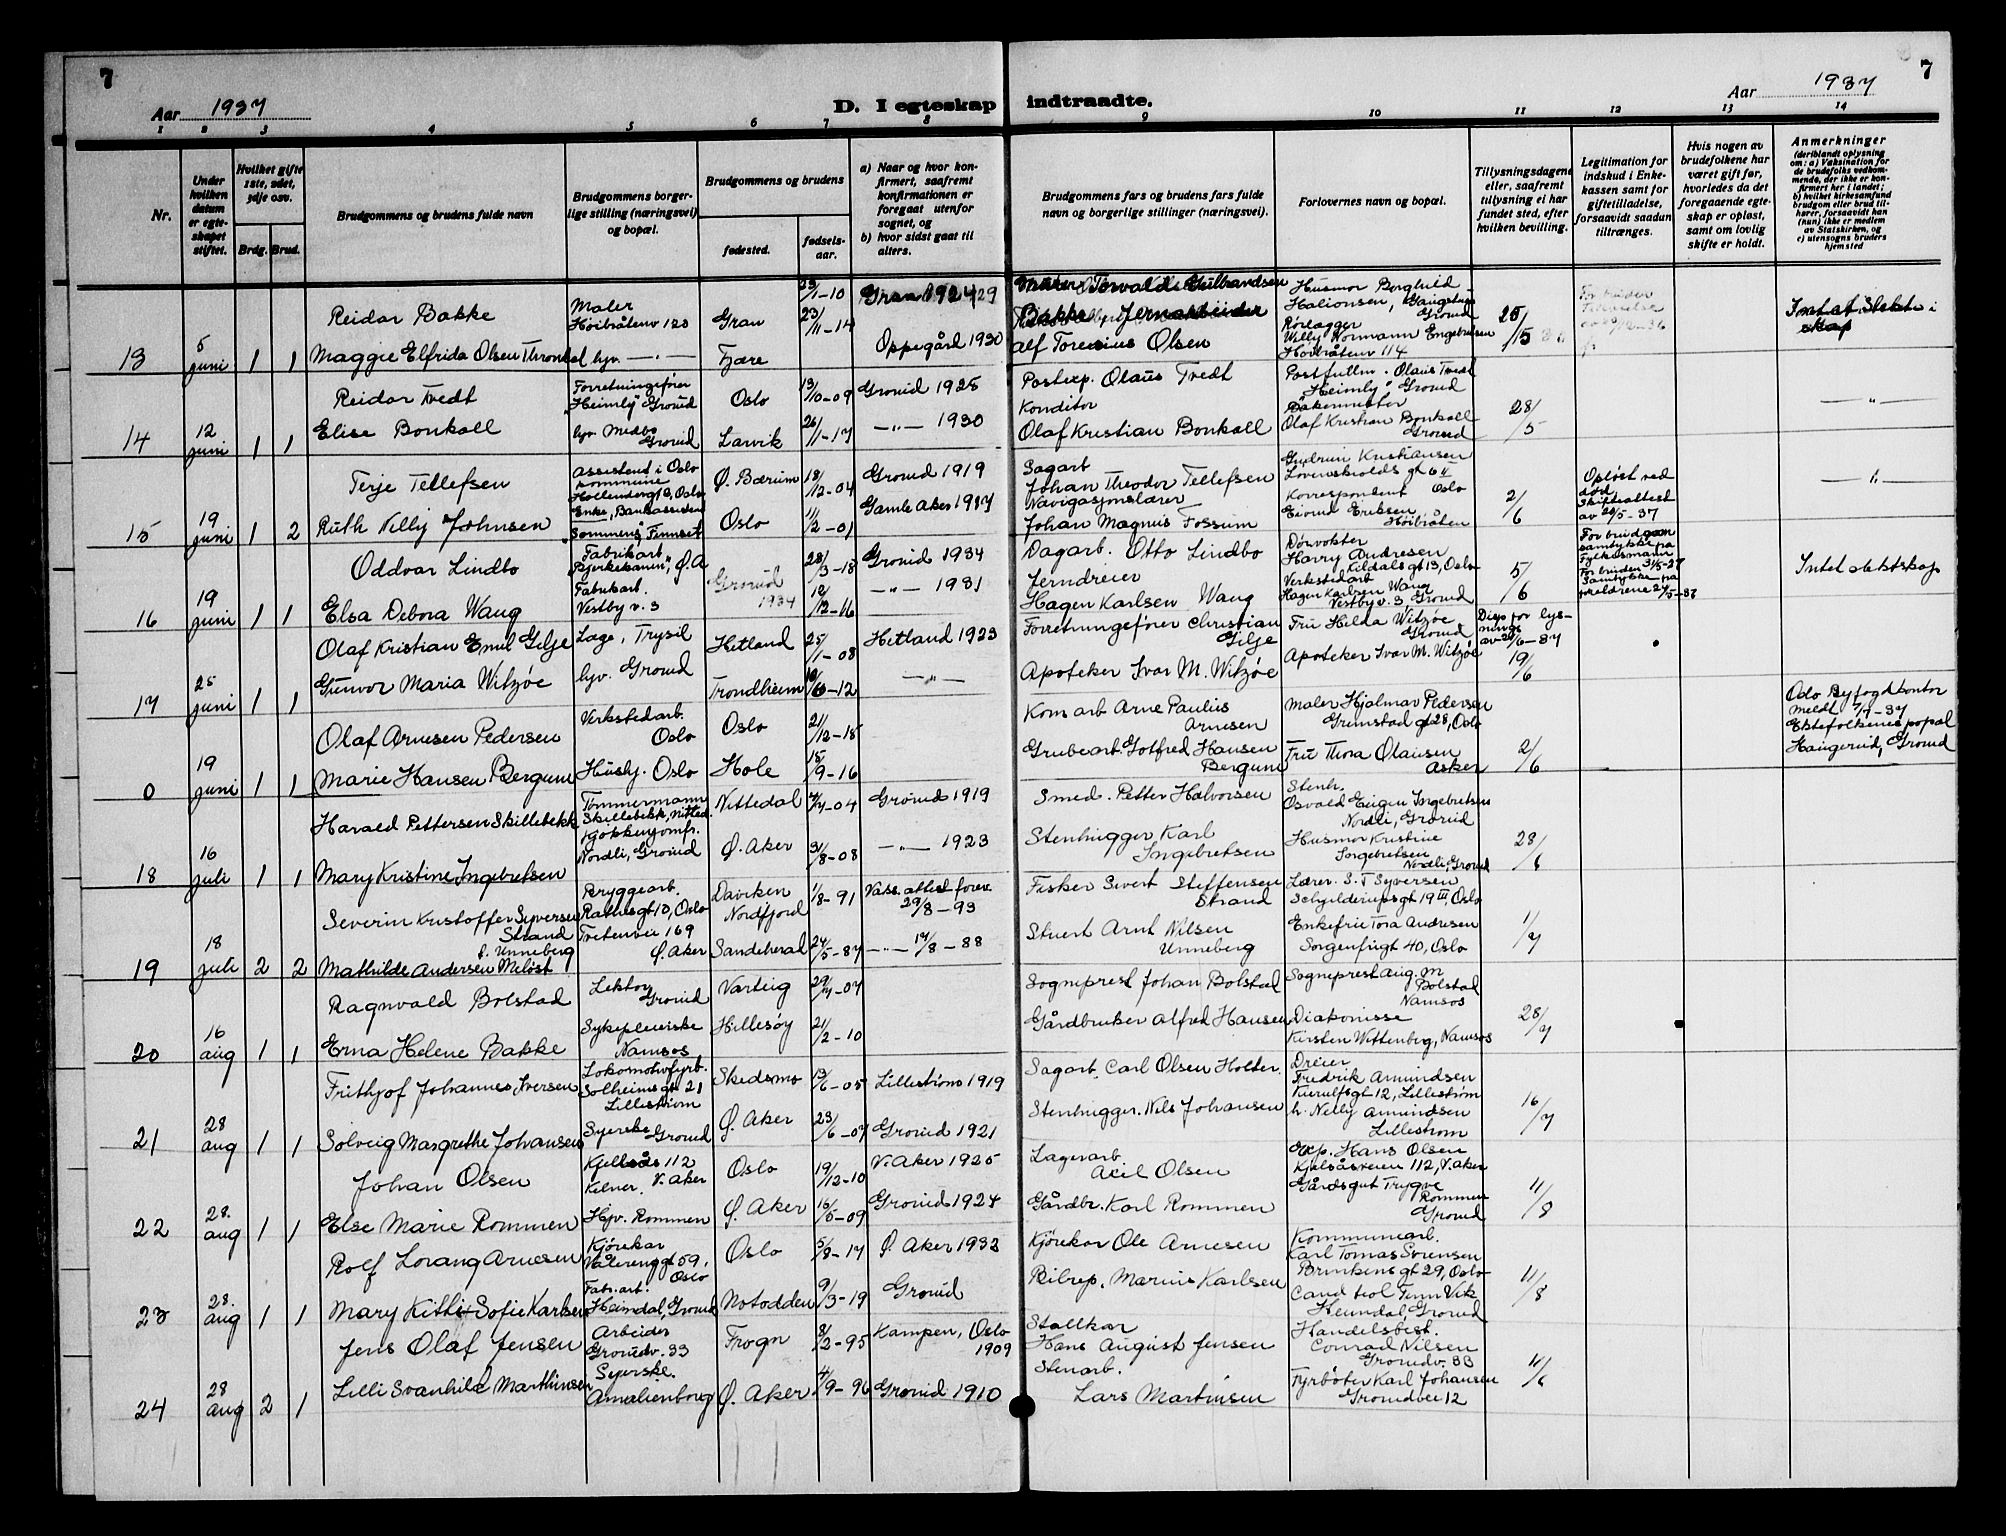 7
Aar 1937
D. I egteskap indtraadte.
Aar 1937
7
1 2 3 4 5 6 7 8 9 10 11 12 13 14
Nr.
Under hvilken datum er egteskapet stiftet.
Hvilket gifte 1ste, 2det, 3dje osv.
Brdg. Brud.
Brudgommens og brudens fulde navn
Brudgommens borgerlige stilling (næringsvei) og bopæl.
Brudgommens og brudens
fødested.
fødselsaar.
a) Naar og hvor konfirmert, saafremt konfirmationen er foregaat utenfor sognet, og
b) hvor sidst gaat til alters.
Brudgommens fars og brudens fars fulde navn og borgerlige stillinger (næringsvei).
Forlovernes navn og bopæl.
Tillysningsdagene eller, saafremt tillysning ei har fundet sted, efter hvilken bevilling.
Legitimation for indskud i Enkekassen samt for giftetilladelse, forsaavidt saadan tiltrænges.
Hvis nogen av brudefolkene har været gift før, hvorledes da det foregaaende egteskap er opløst, samt om lovlig skifte er holdt.
Anmerkninger
(deriblandt oplysning om: a) Vaksination for de brudefolks vedkommende, der ikke er konfirmert her i landet; b) hvilket kirkesamfund brudgom eller brud tilhører, forsaavidt han (hun) ikke er medlem av Statskirken, og c) utensogns bruders hjemsted
13 5 juni 1 1
Reidar Bakke
Maler
Høibråtenv 123
Gran
Maggie Elfrida Olsen
hjv.
Fjære 23/11-14
Oppegård 1930
Alf Torenius Olsen
Husmor Borghild
Grorud
Rørlegger
Willy Normann Engebretsen
Høibråtenv 114
14 12 juni 1 1
Reidar Tvedt
Forretningsfører
"Heimly" Grorud
Oslo 13/10-09 Grorud 1925
Postexp. Olaus Tvedt
Postfullm. Olaus Tvedt
"Heimly" Grorud
Elise Bonkall
hjv. Medbo
Grorud
Larvik 26/11-17 -"- 1930
Konditor
Olaf Kristian Bonkall
Bakermester
Olaf Kristian Bonkall
Grorud
28/5
-"-
15 19 juni 1 2
Terje Tellefsen
Assistent i Oslo
kommune
Ø. Bærum 18/12-04 Grorud 1919
Sagarb
Johan Theodor Tellefsen
Gudrun Kristiansen
Løvenskiolds gt 6 II
Oslo
Ruth Villy Johnsen
Oslo 11/2-01 Gamle Aker 1917
Navigasjonslærer
Johan Magnus Fossum
Korrespondent
Eivind Eriksen,
Høibråten
2/6
Opløst ved død
Skifteattest
av 20/5-37
-"-
16 19 juni 1 1
Oddvar Lindbo
Fabrikarb
"Bjerkekamn", Ø.A
Grorud 28/3-18 Grorud 1934
Dagarb. Otto Lindbo
Dørvokter
Harry Andresen
Kildals gt 13, Oslo
Elsa Debora Wang
Fabrikarb.
Vestby v. 3
1934 12/12-16 -"- 1931
Jerndreier
Hagen Karlsen Wang
Verkstedarb
Hagen Karlsen Wang
Vestby v. 3 Grorud
5/6
For brudgom
samtykke fra
Fylkesmann
31/5-37
For bruden
Samtykke fra
foreldrene 24/5-37
17 25 juni 1 1
Olaf Kristian Emil Gilje
Læge, Trysil
Hetland 25/1-08 Hetland 1923
Forretningsfører Christian
Gilje
Fru Hilda Witzøe
Grorud
Disp for lysnings
av 24/6-37
Gunvor Maria Witzøe
hjv. Grorud
Trondheim 10/6-12 -"-
Apoteker Ivar M. Witzøe
Apoteker Ivar M. Witzøe
19/6
0 19 juni 1 1
Olaf Arnesen Pedersen
Verkstedarb.
Oslo
Oslo 21/12-15
Kom arb Arne Paulius
Arnesen
Maler Hjalmar Pedersen
Grimstad gt 28, Oslo
Marie Hansen Bergum
Hushj. Oslo
Hole 15/9-16
Grubearb. Gotfred Hansen
Bergum
Fru Thora Olausen
Asker
2/6
Oslo Byfogdkontor
meldt 7/7-37
Ektefolkenes bopæl
Haugerud, Grorud
18 16 juli 1 1
Harald Pettersen Skillebekk
Tømmermann
Skillebekk, Nitted.
Nittedal 4/7-04 Grorud 1919
Smed. Petter Halvorsen
Stenh.
Osvald Eugen Ingebretsen
Nordli, Grorud
Mary Kristine Ingebretsen
Kokkejomfr.
Nordli, Grorud
Ø. Aker 31/8-08 -"- 1923
Stenhugger Karl
Ingebretsen
Husmor Kristine
Ingebretsen
Nordli, Grorud
28/6
19 18 juli 2 2
Severin Kristoffer Syversen
Strand
Bryggearb.
Oslo
Daviken
Nordfjord
1/8-91
Vacs. attest forev
29/8-93
Fisker Sivert Steffensen
Strand
Lærer. S. T Syversen
Schjelderups gt 19 III, Oslo
Mathilde Andersen Meløst
f. Unneberg
Tvetenvei 169
Ø. Aker
Sandeherad 24/5-87 -"- 14/8-88
Stuert Arnt Nilsen
Unneberg
Enkefrue Tora Andresen
Sorgenfrigt 40, Oslo
1/7
20 16 aug 1 1
Ragnvald Bolstad
Lektor
Grorud
Varteig 29/7-07
Sogneprest Johan Bolstad
Sogneprest Aug. M
Bolstad
Namsos
Erna Helene Bakke
Sykepleierske
Namsos
Hillesøy 21/2-10
Gårdbruker Alfred Hansen
Diakonisse
Kirsten Wittenberg, Namsos
28/7
21 28 aug 1 1
Frithjof Johannes Iversen
Lokomotivfyrb.
Solheims gt 21
Lillestrøm
Skedsmo 13/6-05 Lillestrøm 1919
Sagarb. Carl Olsen Holter
Dreier
Fredrik Amundsen
Kierulfsgt 12, Lillestrøm
Solveig Margrethe Johansen
Syerske
Grorud
Ø. Aker 23/6-07 Grorud 1921
Stenhugger. Nils Johansen
h. Nelly Amundsen
Lillestrøm
16/7
22 28. aug 1 1
Johan Olsen
Kjellsås 112
Kelner. V. Aker
Oslo 19/12-10 V. Aker 1925
Lagerarb
Axil Olsen
Exp. Hans Olsen
Kjelsåsveien 112, V. Aker
Else Marie Rommen
Hjv. Rommen
Ø. Aker 16/5-09 Grorud 1924
Gårdbr. Karl Rommen
Gårdsgut Trygve
Rommen
Grorud
11/8
23 28. aug 1 1
Rolf Lorang Arnesen
Kjørekar
Vålerenggt 59,
Oslo
Oslo 5/8-17 Ø. Aker 1932
Kjørekar Ole Arnesen
Kommunearb.
Karl Tomas Sørensen
Brinkens gt 29, Oslo
Mary Kitti Sofie Karlsen
Fabr. arb.
Heimdal, Grorud
Notodden 9/3-19 Grorud
Bilrep. Marius Karlsen
Cand teol Finn Vik
Heimdal, Grorud
11/8
24 28 aug 2 1
Jens Olaf Jensen
Arbeider
Grorudv. 33
Frogn 8/2-95 Kampen, Oslo
1909
Stallkar
Hans August Jensen
Handelsbest.
Conrad Nilsen
Grorudv. 33
Lilli Svanhild Marthinsen
Syerske.
Amalienborg
Ø. Aker 4/9-96 Grorud 1910
Stenarb.
Lars Martinsen
Fyrbøter Karl Johansen
Grorudvei 12
11/6